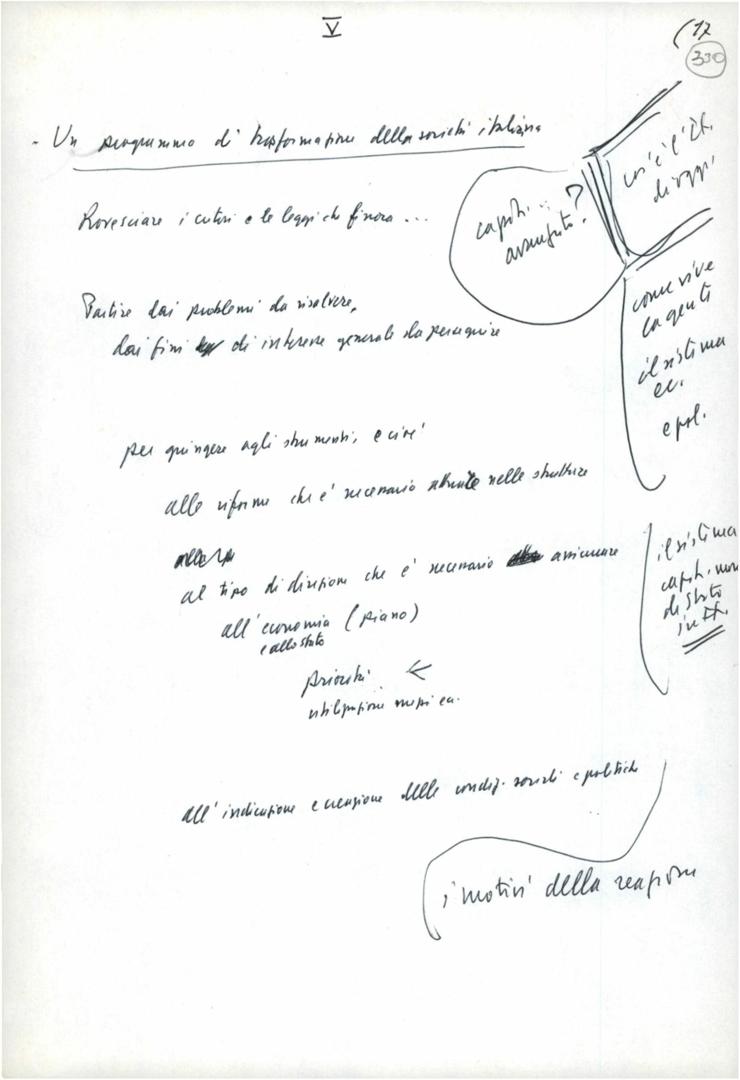 V
(17
330
- Un programma di trasformazione della società italiana
Rovesciare i criteri e le leggi che finora ...
Partire dai problemi da risolvere,
dai fini di interesse generale da perseguire
per giungere agli strumenti, e cioè
alle riforme che è necessario attuare nelle strutture
al tipo di direzione che è necessario assicurare
all'economia (piano)
e allo stato
priorità <
utilizzazione mezzi ec.
all'indicazione e creazione delle condiz. sociali e politiche
i motivi della reazione
capit.
?
cos'è l'It.
di oggi
come vive
la gente
il sistema
ec.
e pol.
il sistema
capit. mon
di stato
in It.